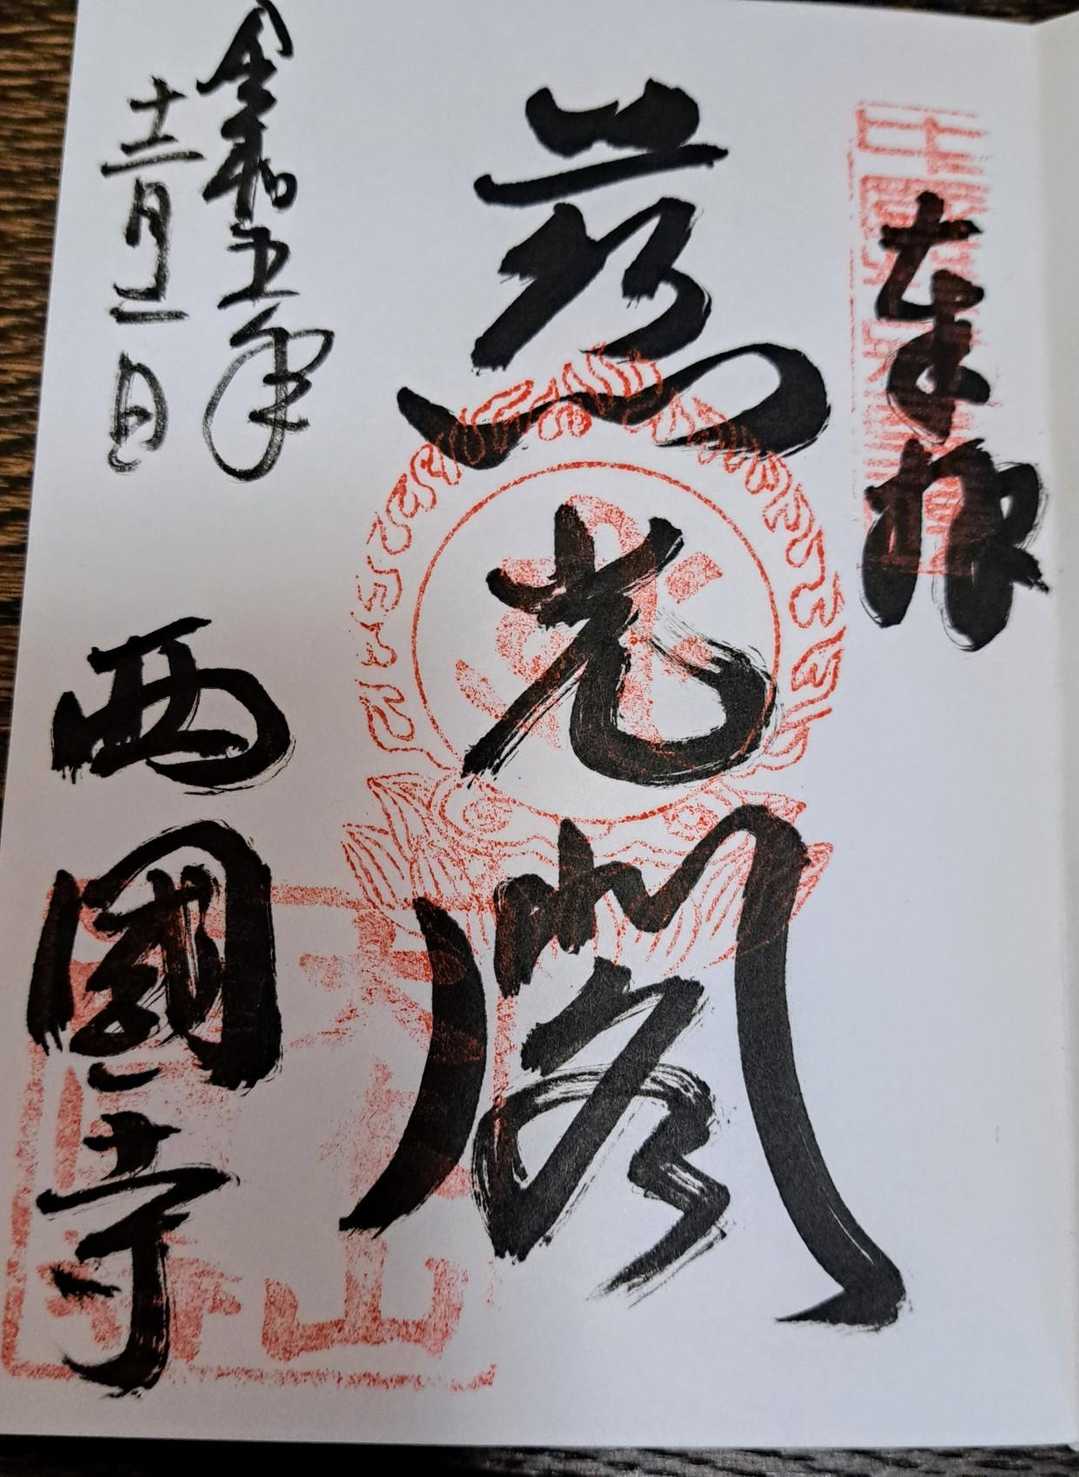 奉拝
慈光閣
令和五年
十二月二日
西國寺